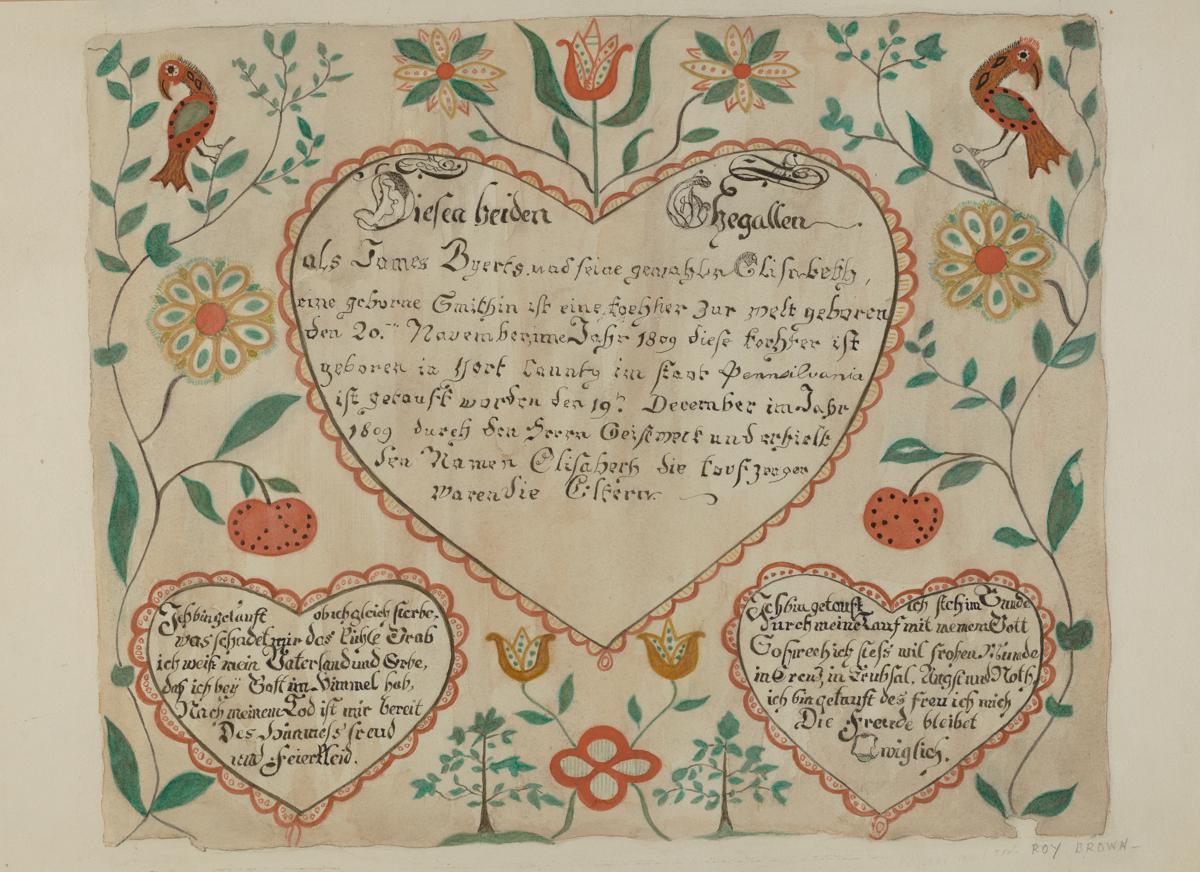 Diesen beiden Ehegatten
als James Byerts und seine gemahlin Elisabeth,
eine geborne Smithin ist eine tochter zur welt geboren
den 20.ten November im Jahr 1809 diese tochter ist
geboren in York Caunty im staat Pennsilvania
ist getauft worden den 19.t December im Jahr
1809 durch den Herrn Geistweit und erhielt
den Namen Elisabeth die taufzeugen
waren die Eltern
Ich bin getauft ob ich gleich sterbe,
was schadet mir das kühle Grab
ich weiß mein Vaterland und Erbe,
daß ich bey Gott im Himmel hab,
Nach meinem Tod ist mir bereit
Des Himmels freud
und Feierkleid.
Ich bin getauft ich steh im Bunde
durch meine Tauf mit meinem Gott
So sprech ich stets mit frohen Munde
in Creuz, in Trübsal, Angst und Noth,
ich bin getauft des freu ich mich
Die Freude bleibet
Ewiglich.
ROY BROWN-